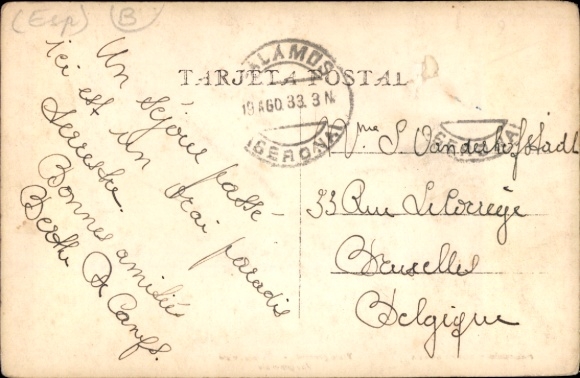 (Esp) B
TARJETA POSTAL
PALAMOS
19 AGO. 33. 3
(GERONA)
Un séjour passé
ici est un vrai paradis
terrestre.
Bonnes amitiés
Berthe
Mme S. Vanderhofstadt
33 Rue Le Corrège
Bruxelles
Belgique